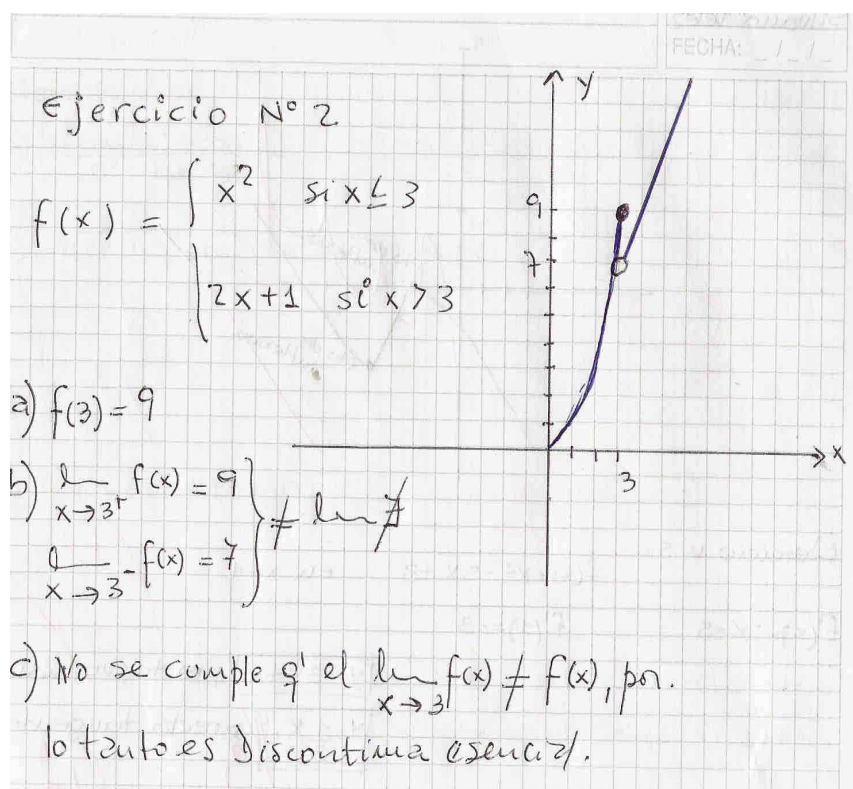 FECHA: _ / _ / _
Ejercicio N° 2
f(x) = { x² si x ≤ 3
2x+1 si x > 3
y
9
7
3
x
a) f(3) = 9
b) lim x→3⁺ f(x) = 9
lim x→3⁻ f(x) = 7 } ≠ lim ∄
c) No se cumple q' el lim x→3 f(x) ≠ f(x), por.
lo tanto es Discontinua esencial.